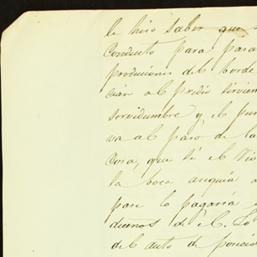 le hizo saber que
conducto para para
producciones del borde
cian al predio sirvien
servidumbre y el pun
va al paso de la
cora, que si el Vis
la boca acequia a
pase lo pagaria
duenos de el
del auto de posecio